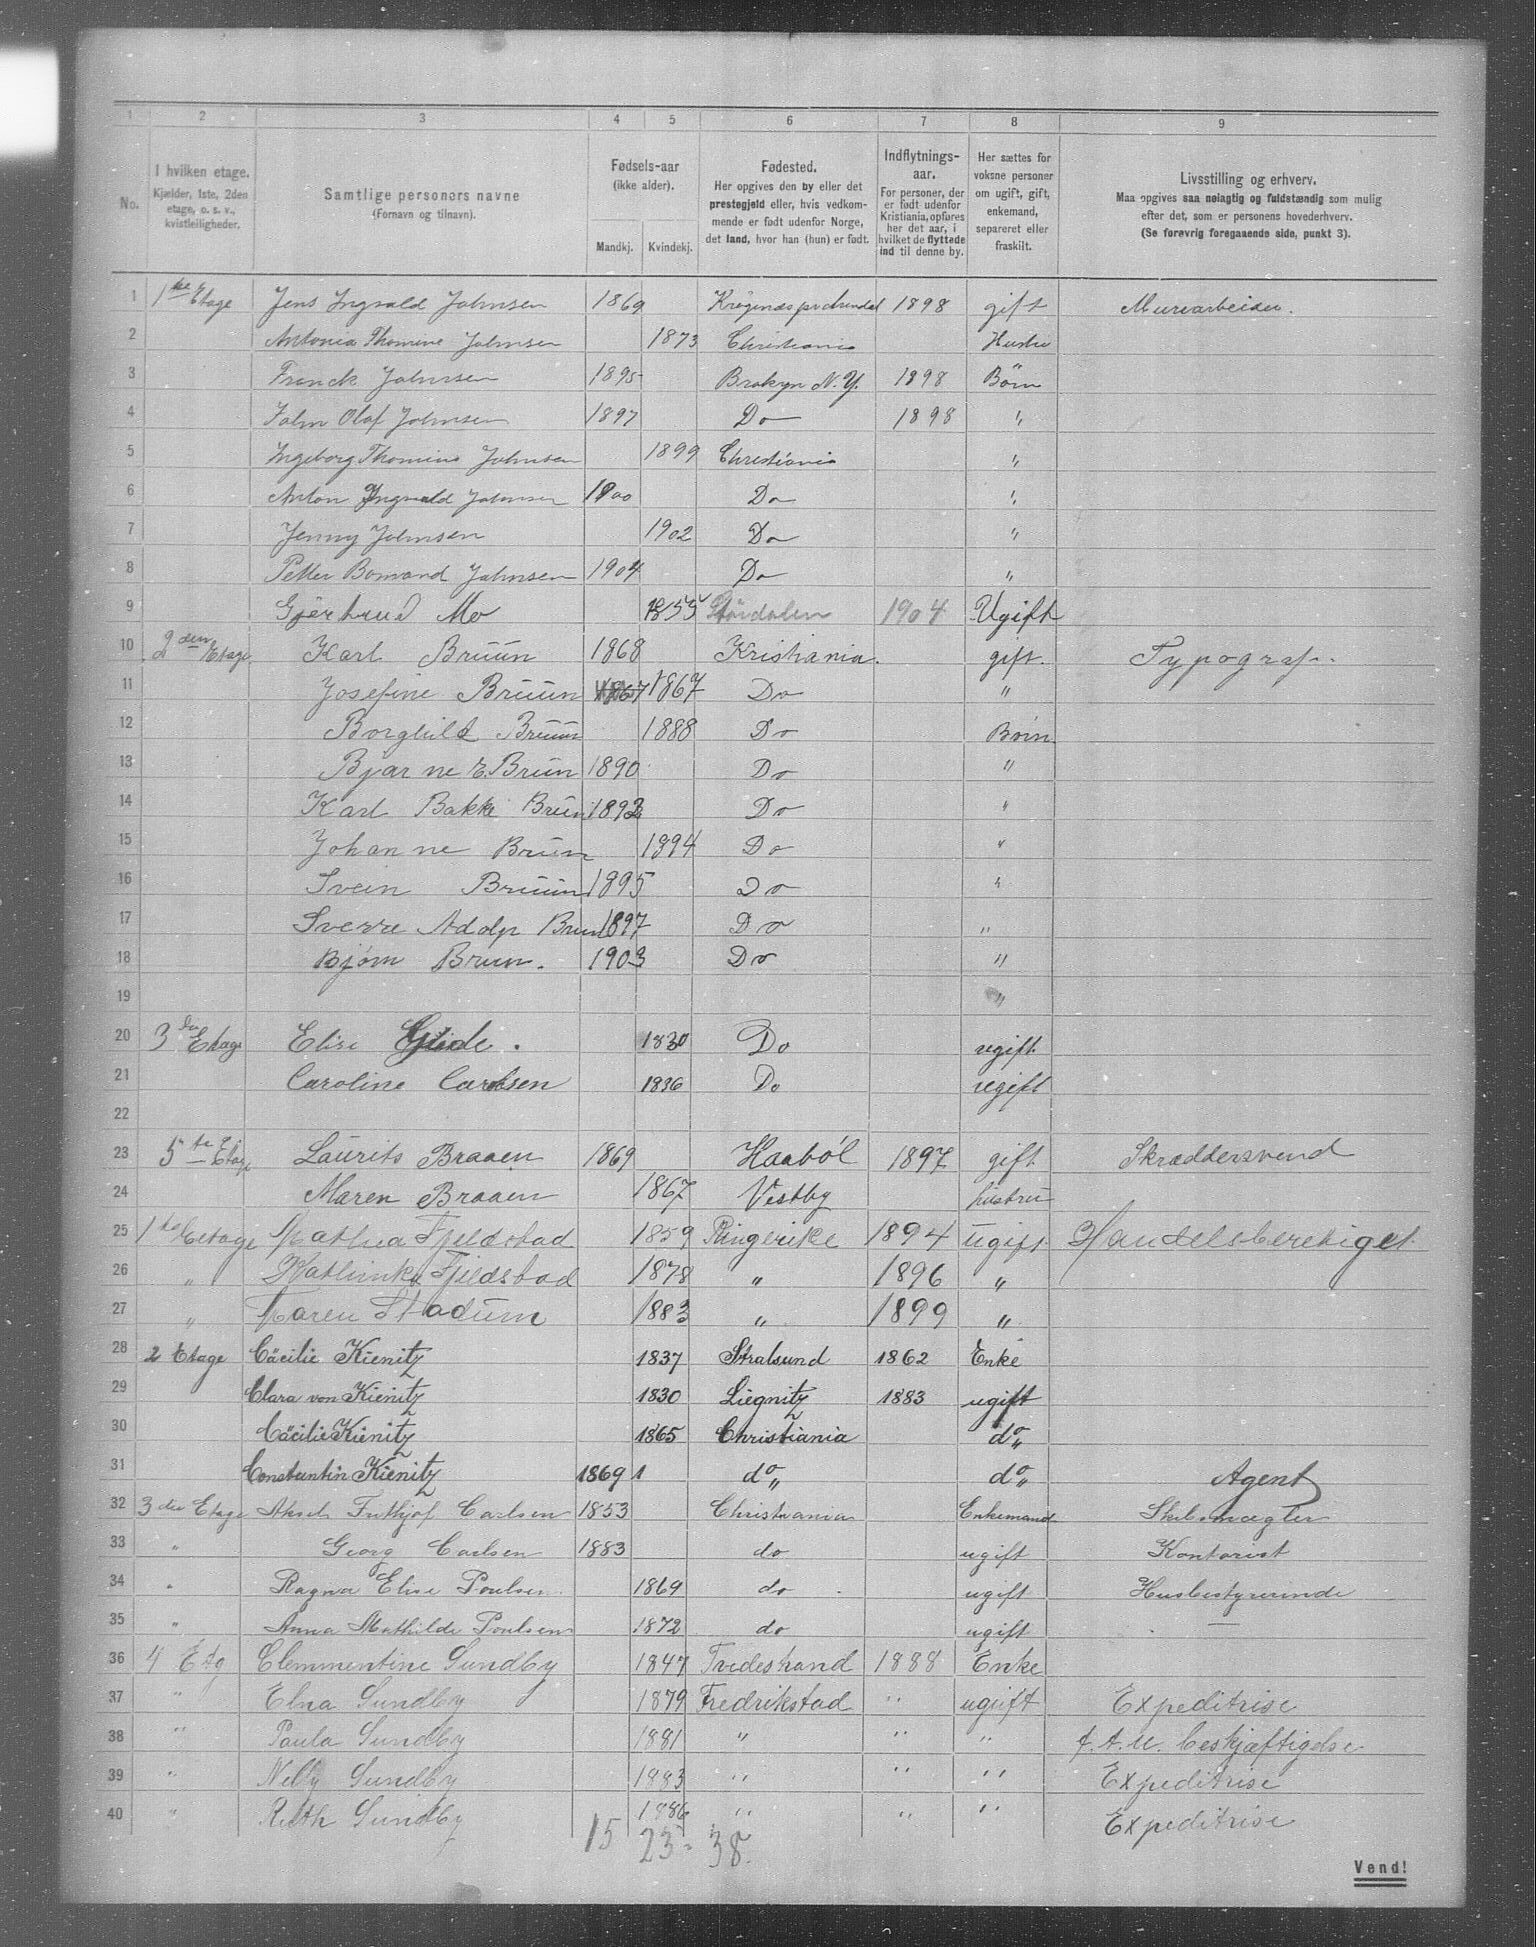 1 2 3 4 5 6 7 8 9
No. I hvilken etage. Kjælder, 1ste, 2den etage, o. s. v., kvistleiligheder. Samtlige personers navne (Fornavn og tilnavn). Fødsels-aar (ikke alder). Mandkj. Kvindekj. Fødested. Her opgives den by eller det prestegjeld eller, hvis vedkommende er født udenfor Norge, det land, hvor han (hun) er født. Indflytnings-aar. For personer, der er født udenfor Kristiania, opføres her det aar, i hvilket de flyttede ind til denne by. Her sættes for voksne personer om ugift, gift, enkemand, separeret eller fraskilt. Livsstilling og erhverv. Maa opgives saa nøiagtig og fuldstændig som mulig efter det, som er personens hovederhverv. (Se forøvrig foregaaende side, punkt 3).
1 1ste Etage Jens Ingvald Johnsen 1869 1898 gift Murearbeider.
2 Antonia Thomine Johnsen 1873 Christiania Hustru
3 Franck Johnsen 1895 Brokyn N.Y. 1898 Börn
4 John Olaf Johnsen 1897 Do 1898 "
5 Ingeborg Thomine Johnsen 1899 Christiania "
6 Anton Ingvald Johnsen 1900 Do "
7 Jenny Johnsen 1902 Do "
8 Petter Johnsen 1904 Do "
9 Gjærtrud Mo 1855 Størdalen 1904 Ugift
10 2den Etage Karl Bruun 1868 Kristiania. gift. Typograf.
11 Josefine Bruun 1867 1867 Do "
12 Borghild Bruun 1888 Do Börn.
13 Bjarne E. Brun 1890 Do "
14 Karl Bakke Brun 1892 Do "
15 Johanne Brun 1894 Do "
16 Svein Bruun 1895 Do "
17 Sverre Adolp Brun 1897 Do "
18 Bjørn Brun. 1903 Do "
19 "
20 3die Etage Elise Gude. 1830 Do ugift.
21 Caroline Carlsen 1836 Do ugift
22
23 5te Etage Laurits Braaen 1869 Haabøl 1897 gift Skræddersvend
24 Maren Braaen 1867 Vestby hustru
25 1ste Etage Mathea Fjeldstad 1859 Ringerike 1894 ugift Handelsberetiget
26 " Kathinka Fjeldstad 1878 " 1896 "
27 " Maren Stadum 1883 " 1899 "
28 2 Etage Cäcilie Kienitz 1837 Stralsund 1862 Enke
29 Clara von Kienitz 1830 Liegnitz 1883 ugift
30 Cäcilie Kienitz 1865 Christiania do "
31 Constantin Kienitz 1869 1 do " do " Agent
32 3die Etage Aksel Frithjof Carlsen 1853 Christiania Enkemand Skibsmægler
33 " Georg Carlsen 1883 do ugift Kontorist
34 " Ragna Elise Poulsen 1869 do. ugift Husbestyrerinde
35 " Anna Mathilde Poulsen 1872 do ugift —
36 4 Etg Clemmentine Sundby 1847 Tvedestrand 1888 Enke
37 " Elna Sundby 1879 Fredrikstad " ugift Expeditrise
38 " Paula Sundby 1881 " " " beskjæftigelse
39 " Nelly Sundby 1883 " " " Expeditrise
40 " Ruth Sundby 1886 " " " Expeditrise
15 23 - 38.
Vend!